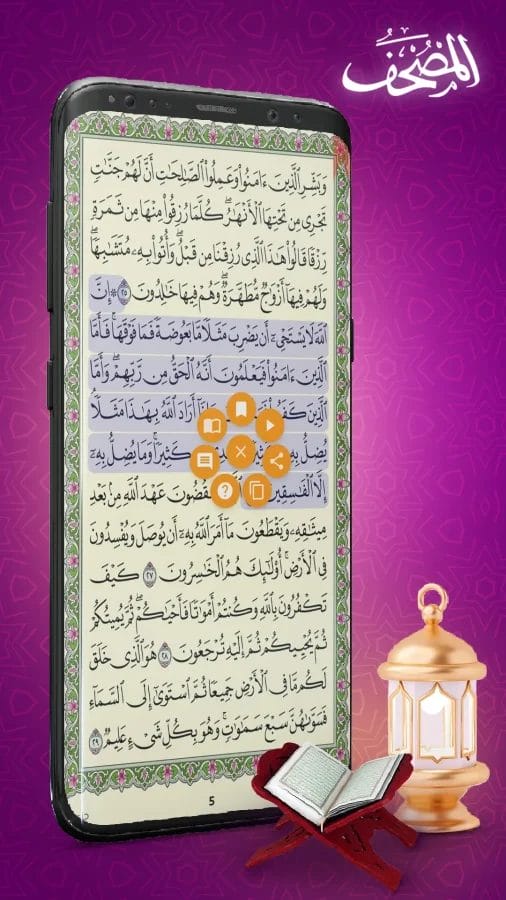 المصحف
وَبَشِّرِ الَّذِينَ ءَامَنُوا وَعَمِلُوا الصَّالِحَاتِ أَنَّ لَهُمْ جَنَّاتٍ
تَجْرِي مِن تَحْتِهَا الْأَنْهَارُ ۖ كُلَّمَا رُزِقُوا مِنْهَا مِن ثَمَرَةٍ
رِّزْقًا قَالُوا هَٰذَا الَّذِي رُزِقْنَا مِن قَبْلُ ۖ وَأُتُوا بِهِ مُتَشَابِهًا ۖ
وَلَهُمْ فِيهَا أَزْوَاجٌ مُّطَهَّرَةٌ ۖ وَهُمْ فِيهَا خَالِدُونَ ٢٥ ۞ إِنَّ
اللَّهَ لَا يَسْتَحْيِۦٓ أَن يَضْرِبَ مَثَلًا مَّا بَعُوضَةً فَمَا فَوْقَهَا ۚ فَأَمَّا
الَّذِينَ ءَامَنُوا فَيَعْلَمُونَ أَنَّهُ الْحَقُّ مِن رَّبِّهِمْ ۖ وَأَمَّا
الَّذِينَ أَرَادَ اللَّهُ بِهَٰذَا مَثَلًا ۘ
يُضِلُّ كَثِيرًا ۚ وَمَا يُضِلُّ بِهِۦٓ
إِلَّا الْفَاسِقِينَ عَهْدَ اللَّهِ مِن بَعْدِ
مِيثَاقِهِ وَيَقْطَعُونَ مَا أَمَرَ اللَّهُ بِهِۦٓ أَن يُوصَلَ وَيُفْسِدُونَ
فِي الْأَرْضِ ۚ أُولَٰئِكَ هُمُ الْخَاسِرُونَ ٢٧ كَيْفَ
تَكْفُرُونَ بِاللَّهِ وَكُنتُمْ أَمْوَاتًا فَأَحْيَاكُمْ ۖ ثُمَّ يُمِيتُكُمْ
ثُمَّ يُحْيِيكُمْ ثُمَّ إِلَيْهِ تُرْجَعُونَ ٢٨ هُوَ الَّذِي خَلَقَ
لَكُم مَّا فِي الْأَرْضِ جَمِيعًا ثُمَّ اسْتَوَىٰ إِلَى السَّمَاءِ
فَسَوَّاهُنَّ سَبْعَ سَمَاوَاتٍ ۚ وَهُوَ بِكُلِّ شَيْءٍ عَلِيمٌ ٢٩
5